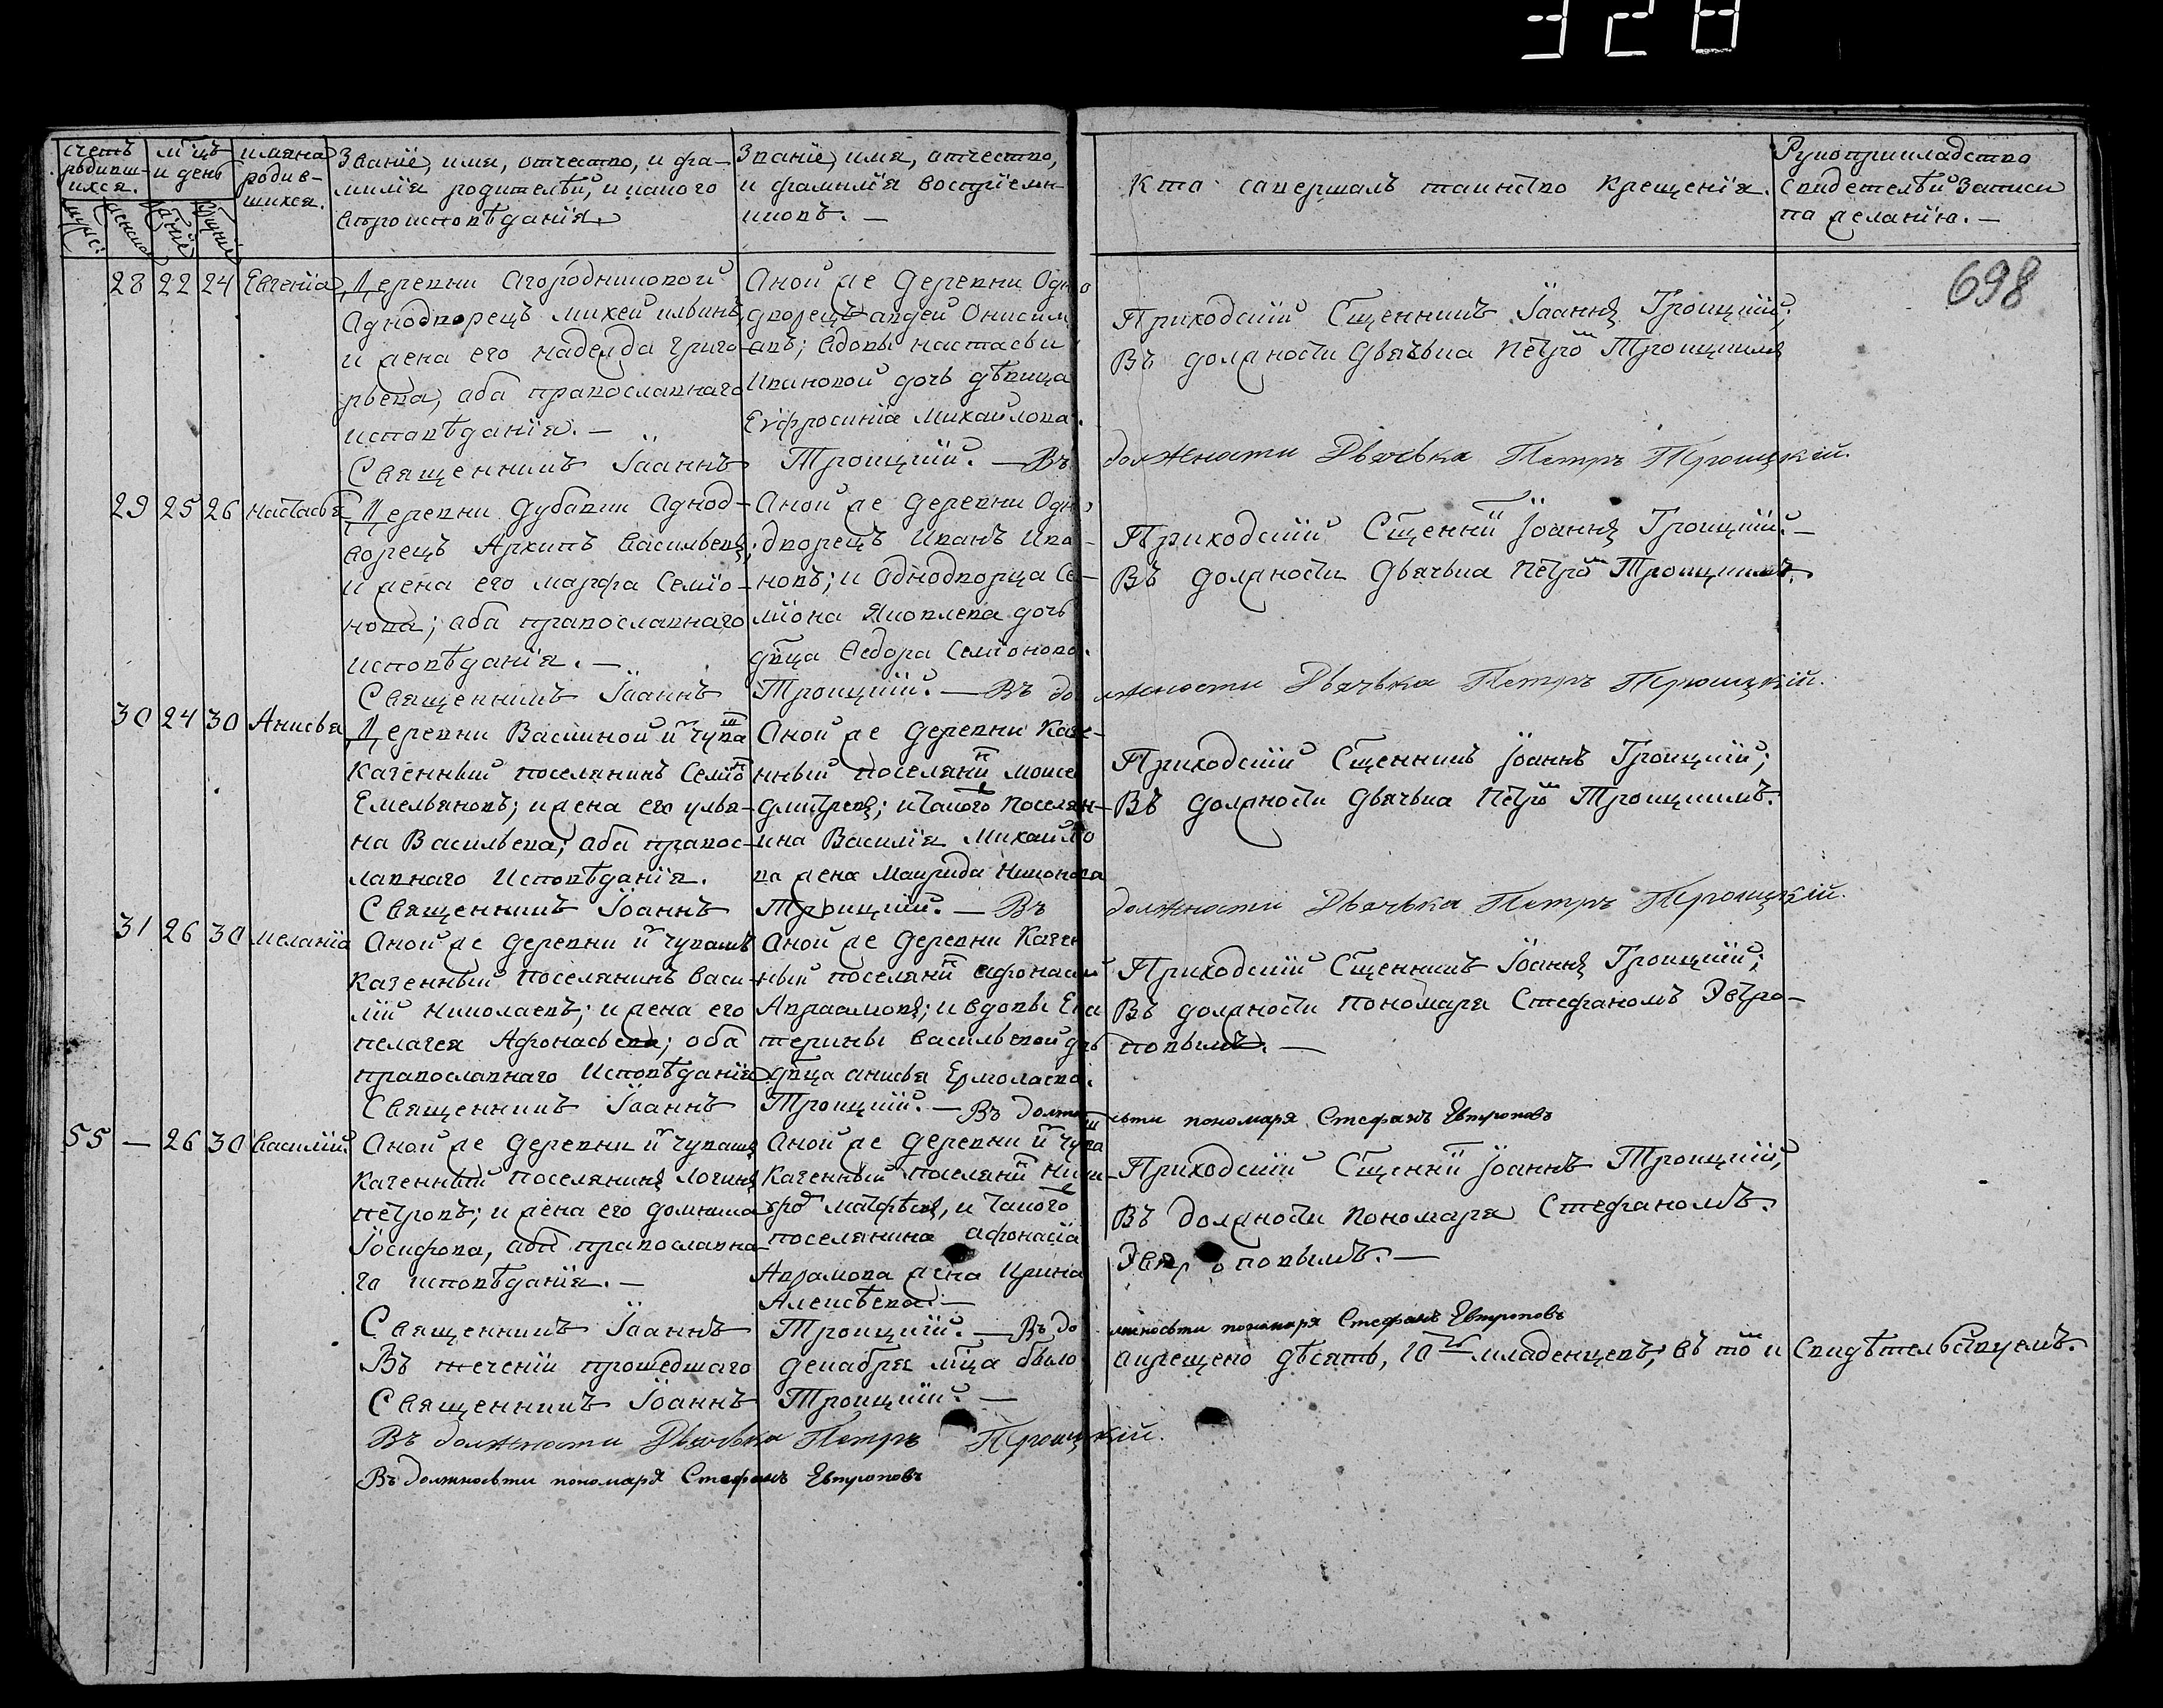 328
698
счетъ родивш-ихся.
муже:
женска
м͠цъ и день
рожде
креще
имяна родив-шихся.
Званіе, имя, отчество, и фа-
милія родителѣй, и какого
вѣроисповѣданія.
Званіе, имя, отчество,
и фамилія воспріемн-
иковъ. —
Кто савершалъ таинство крещенія.
Рукоприкладство
свидетелѣй записи
па желанію. —
28 22 24 Евгенїа
Деревни Агородниковой
Аднодворецъ михей ильинъ,
и жена его надежда Григо-
рьева, аба православнаго
исповѣданія. —
Аной же Деревни Одно
дворецъ авдей Онисим
авъ; вдовы настасьи
Ивановой дочь дѣвица
Еѵфросиніа Михайлова.
Приходскій Сщенникъ Іоаннъ Троицкій;
Въ должности Дьячька Пётро͠м Троицкимъ
Священникъ Іоаннъ Троицкій. — Въ должности Дьячька Петръ Троицкій.
29 25 26 настасья
Деревни Дубавки Аднод-
ворецъ Архипъ Васильевъ;
и жена его марфа Семіо-
нова; аба православнаго
исповѣданія. —
Аной же деревни Одно
дворецъ Иванъ Ива-
новъ; и Однодворца Се-
міона Яковлева дочь
дѣ͠вца Ѳедора Семіонова.
Приходскій Сщенни͠к Іоаннъ Троицкій. —
Въ должности Дьячька Пётро͠м Троицкимъ.
Священникъ Іоаннъ Троицкій. — Въ должности Дьячька Петръ Троицкій.
30 24 30 Анисья
Деревни Васкиной и͠з чува͠ш
Казенный поселянинъ Семіо͠н
Емельяновъ; и жена его улья-
на Васильева; аба правос-
лавнаго Исповѣданія.
Аной же деревни Казе-
нный поселяни͠н Моисе
дмитревъ; и такого поселян-
ина Василія Михайло
ва жена Маврида Никонова
Приходскій Сщенникъ Іоаннъ Троицкій;
Въ должности Дьячька Пётро͠м Троицкимъ.
Священникъ Іоаннъ Троицкій. — Въ должности Дьячька Петръ Троицкій.
31 26 30 Меланїа
Аной же деревни и͠з чувашъ
казенный поселянинъ васи-
лій Николаевъ; и жена его
пелагея Афонасьева; оба
православнаго Исповѣданія
Аной же Деревни Казен
ный поселяни͠н афонасій
Авраамовъ; и вдовы Ека
терины Васильевой дочь
дѣ͠вца анисья Ермолаева.
Приходскій Сщенникъ Іоаннъ Троицкій;
Въ должности пономаря Стефаномъ Эѵтро-
повымъ. —
Священникъ Іоаннъ Троицкій. — Въ должносьти пономаря Стефанъ Евтроповъ
55 — 26 30 василій.
Аной же деревни и͠з чувашъ
Казенный поселянинъ Логинъ
пётровъ; и жена его домника
Іосифова, аба православна-
га исповѣданія. —
Аной же деревни и͠з чува͠ш
Казенный поселяни͠н Ники-
фо͠р матфѣевъ, и такого
поселянина афонасїа
Аврамова жена Ирина
Алексѣева. —
Приходскій Сщенни͠к Іоаннъ Троицкій,
Въ должности пономаря Стефаномъ.
Эвтроповымъ. —
Священникъ Іоаннъ Троицкій. — Въ должносьти пономаря Стефанъ Евтроповъ
Въ течении прошедшаго декабря м͠ца было акрещено дѣсять, 10ть младенцевъ; въ то͠м и свидѣтельствуемъ.
Священникъ Іоаннъ Троицкій. —
Въ должности Дьячька Петръ Троицкій.
Въ должносьти пономаря Стефанъ Евтроповъ